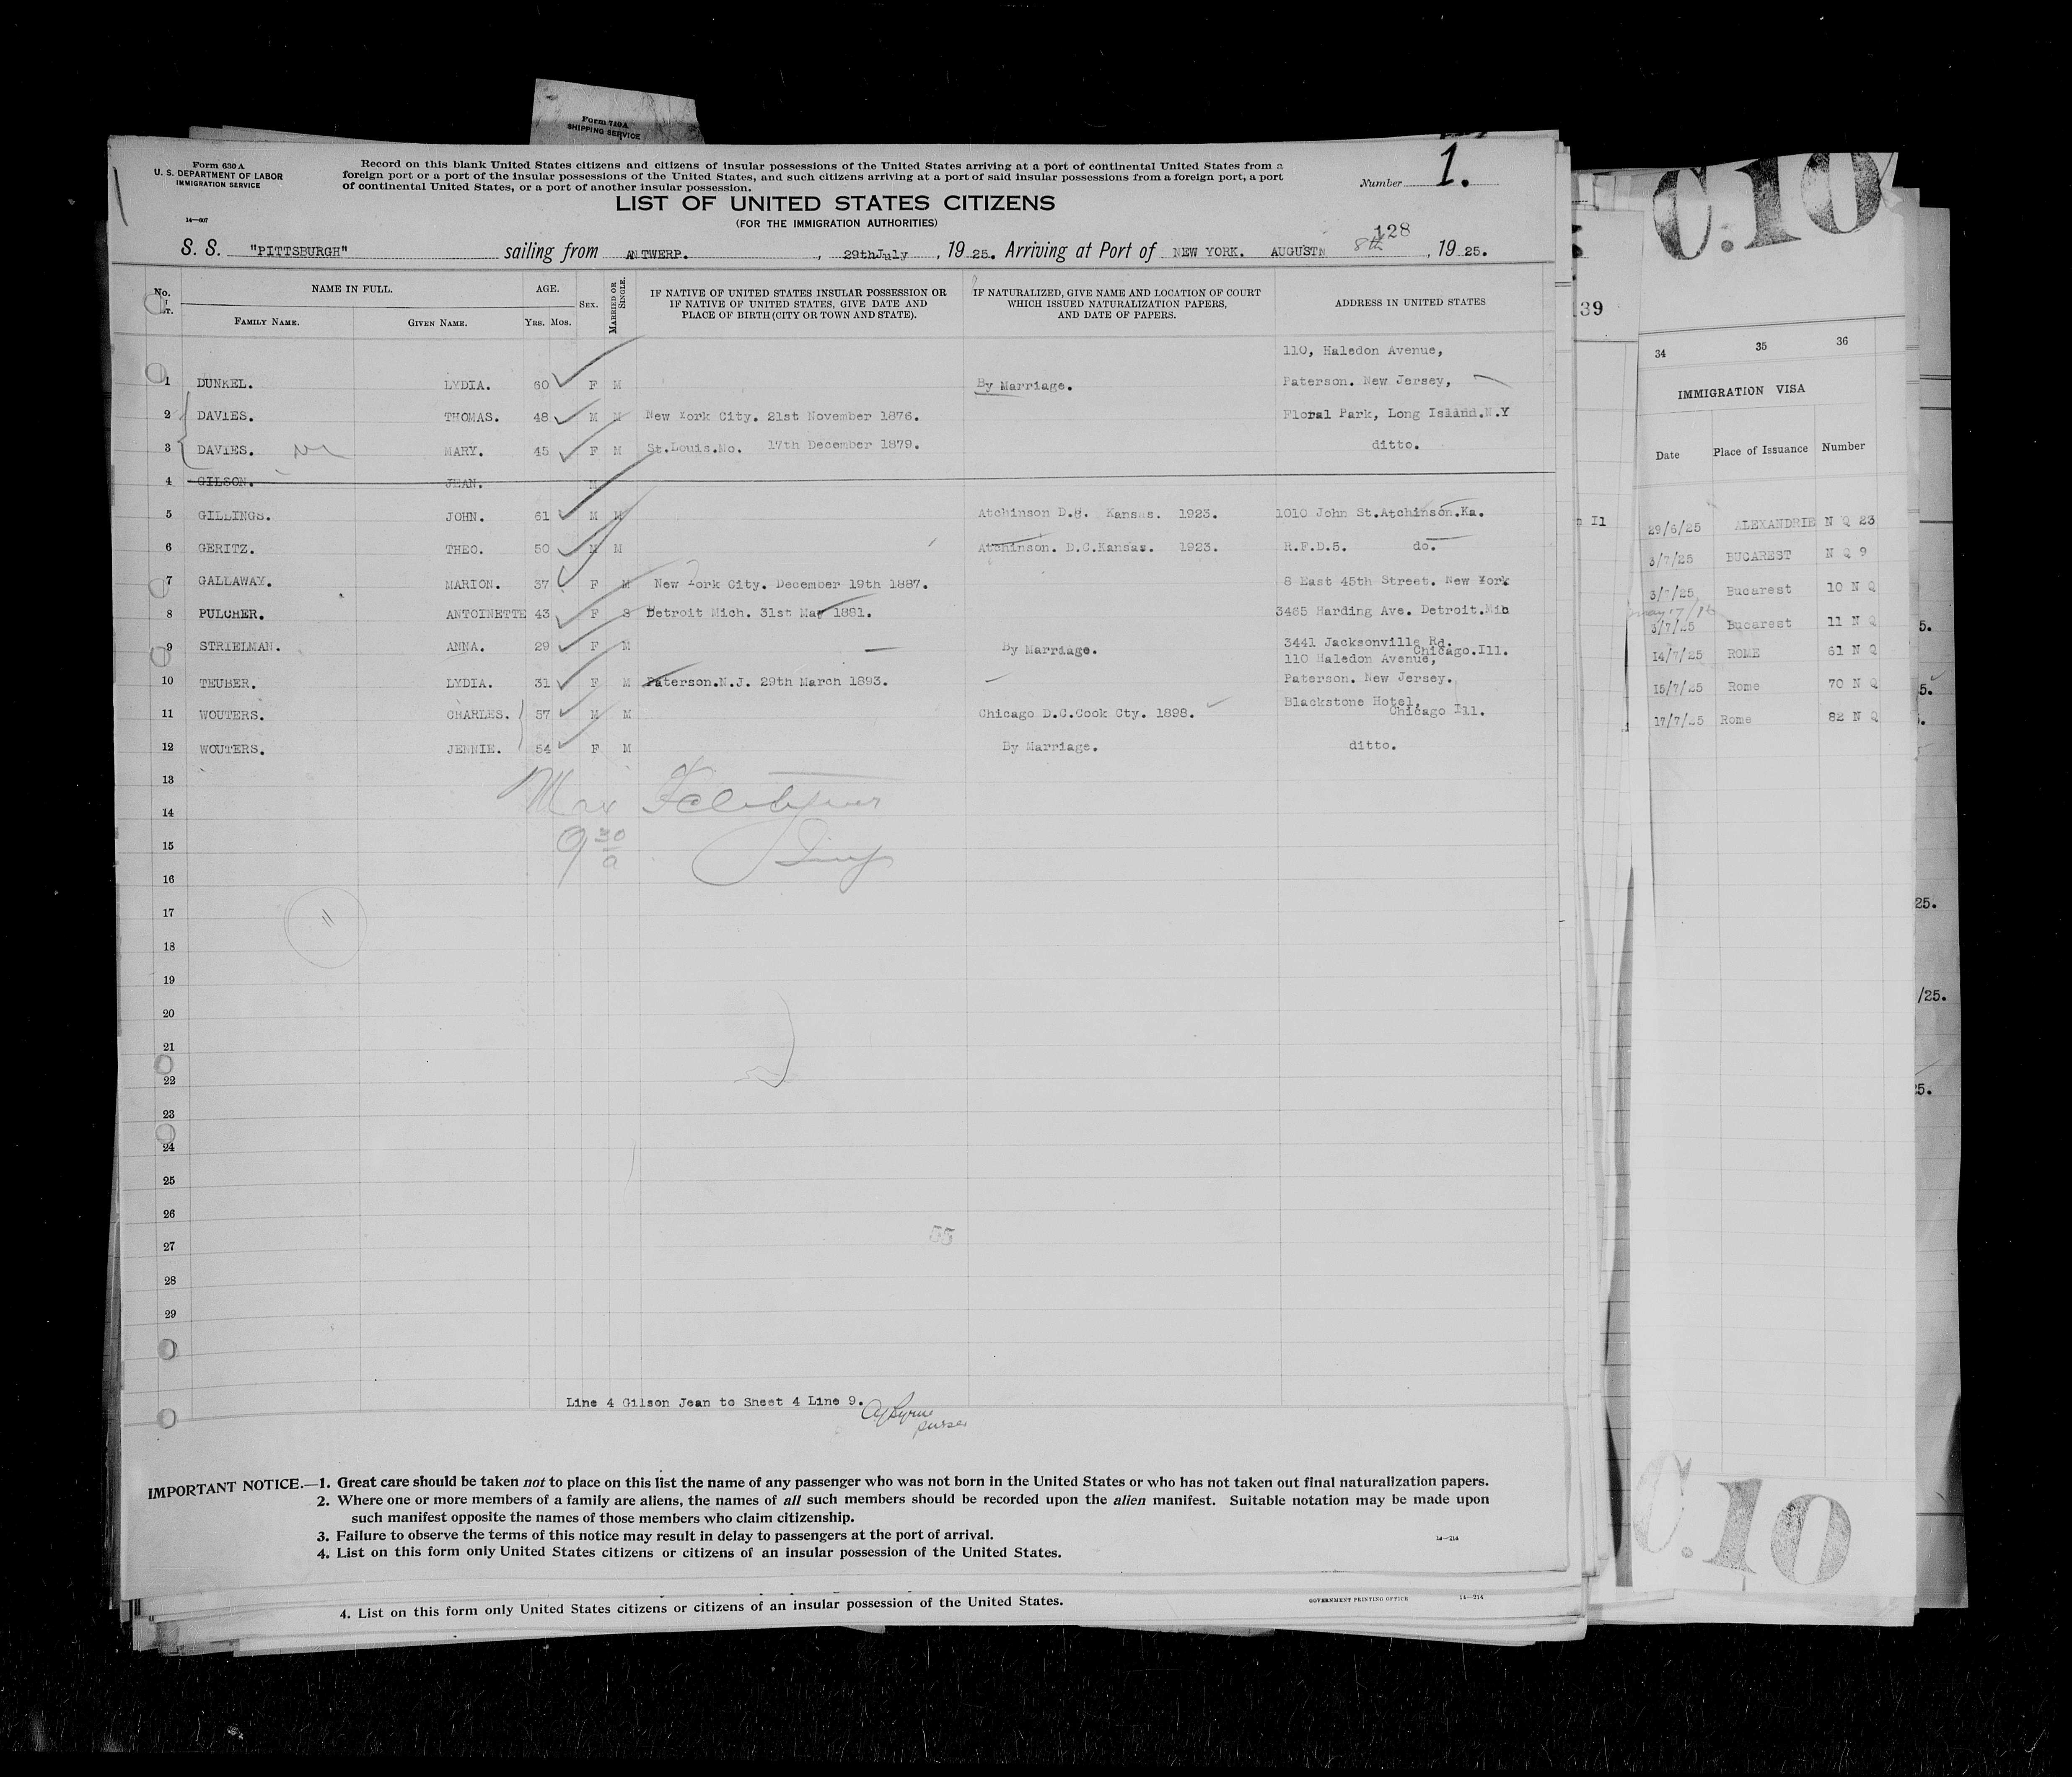 Form 719A
SHIPPING SERVICE
Form 630 A
U. S. DEPARTMENT OF LABOR
IMMIGRATION SERVICE
14—607
Record on this blank United States citizens and citizens of insular possessions of the United States arriving at a port of continental United States from a
foreign port or a port of the insular possessions of the United States, and such citizens arriving at a port of said insular possessions from a foreign port, a port
of continental United States, or a port of another insular possession.
Number 1.
LIST OF UNITED STATES CITIZENS
(FOR THE IMMIGRATION AUTHORITIES)
128
S. S. "PITTSBURGH" sailing from ANTWERP. , 29thJuly , 19 25. Arriving at Port of NEW YORK. AUGUSTN 8th , 19 25.
No. NAME IN FULL. AGE. SEX. MARRIED OR SINGLE.
FAMILY NAME. GIVEN NAME. YRS. MOS.
IF NATIVE OF UNITED STATES INSULAR POSSESSION OR
IF NATIVE OF UNITED STATES, GIVE DATE AND
PLACE OF BIRTH (CITY OR TOWN AND STATE).
IF NATURALIZED, GIVE NAME AND LOCATION OF COURT
WHICH ISSUED NATURALIZATION PAPERS,
AND DATE OF PAPERS.
ADDRESS IN UNITED STATES
110, Haledon Avenue,
1 DUNKEL. LYDIA. 60 F M By Marriage. Paterson. New Jersey,
2 DAVIES. THOMAS. 48 M M New York City. 21st November 1876. Floral Park, Long Island.N.Y
3 DAVIES. MARY. 45 F M St.Louis.Mo. 17th December 1879. ditto.
4 GILSON. JEAN. M
5 GILLINGS. JOHN. 61 M M Atchinson D.C. Kansas. 1923. 1010 John St.Atchinson.Ka.
6 GERITZ. THEO. 50 M M Atchinson. D.C.Kansas. 1923. R.F.D.5. do.
7 GALLAWAY. MARION. 37 F M New York City. December 19th 1887. 8 East 45th Street. New York
8 PULCHER. ANTOINETTE 43 F S Detroit Mich. 31st May 1881. 3465 Harding Ave. Detroit.Mic
9 STRIELMAN. ANNA. 29 F M By Marriage. 3441 Jacksonville Rd.
Chicago.Ill.
110 Haledon Avenue,
10 TEUBER. LYDIA. 31 F M Paterson.N.J. 29th March 1893. Paterson. New Jersey.
Blackstone Hotel,
11 WOUTERS. CHARLES. 57 M M Chicago D.C.Cook Cty. 1898. Chicago Ill.
12 WOUTERS. JENNIE. 54 F M By Marriage. ditto.
13
14
15
16
17
18
19
20
21
22
23
24
25
26
27
28
29
9 30
a
11
55
Line 4 Gilson Jean to Sheet 4 Line 9.
Purser
IMPORTANT NOTICE.—1. Great care should be taken not to place on this list the name of any passenger who was not born in the United States or who has not taken out final naturalization papers.
2. Where one or more members of a family are aliens, the names of all such members should be recorded upon the alien manifest. Suitable notation may be made upon
such manifest opposite the names of those members who claim citizenship.
3. Failure to observe the terms of this notice may result in delay to passengers at the port of arrival.
4. List on this form only United States citizens or citizens of an insular possession of the United States.
14—214
4. List on this form only United States citizens or citizens of an insular possession of the United States.
GOVERNMENT PRINTING OFFICE
14—214
C.10
139
34 35 36
IMMIGRATION VISA
Date Place of Issuance Number
29/6/25 ALEXANDRIE N Q 23
3/7/25 BUCAREST N Q 9
3/7/25 Bucarest 10 N Q
3/7/25 Bucarest 11 N Q
14/7/25 ROME 61 N Q
15/7/25 Rome 70 N Q
17/7/25 Rome 82 N Q
5.
5.
25.
/25.
5.
C.10